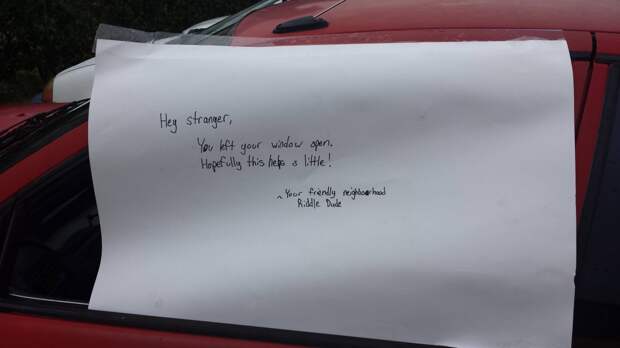 Hey stranger,
You left your window open.
Hopefully this helps a little!
~ Your friendly neighborhood
Riddle Dude